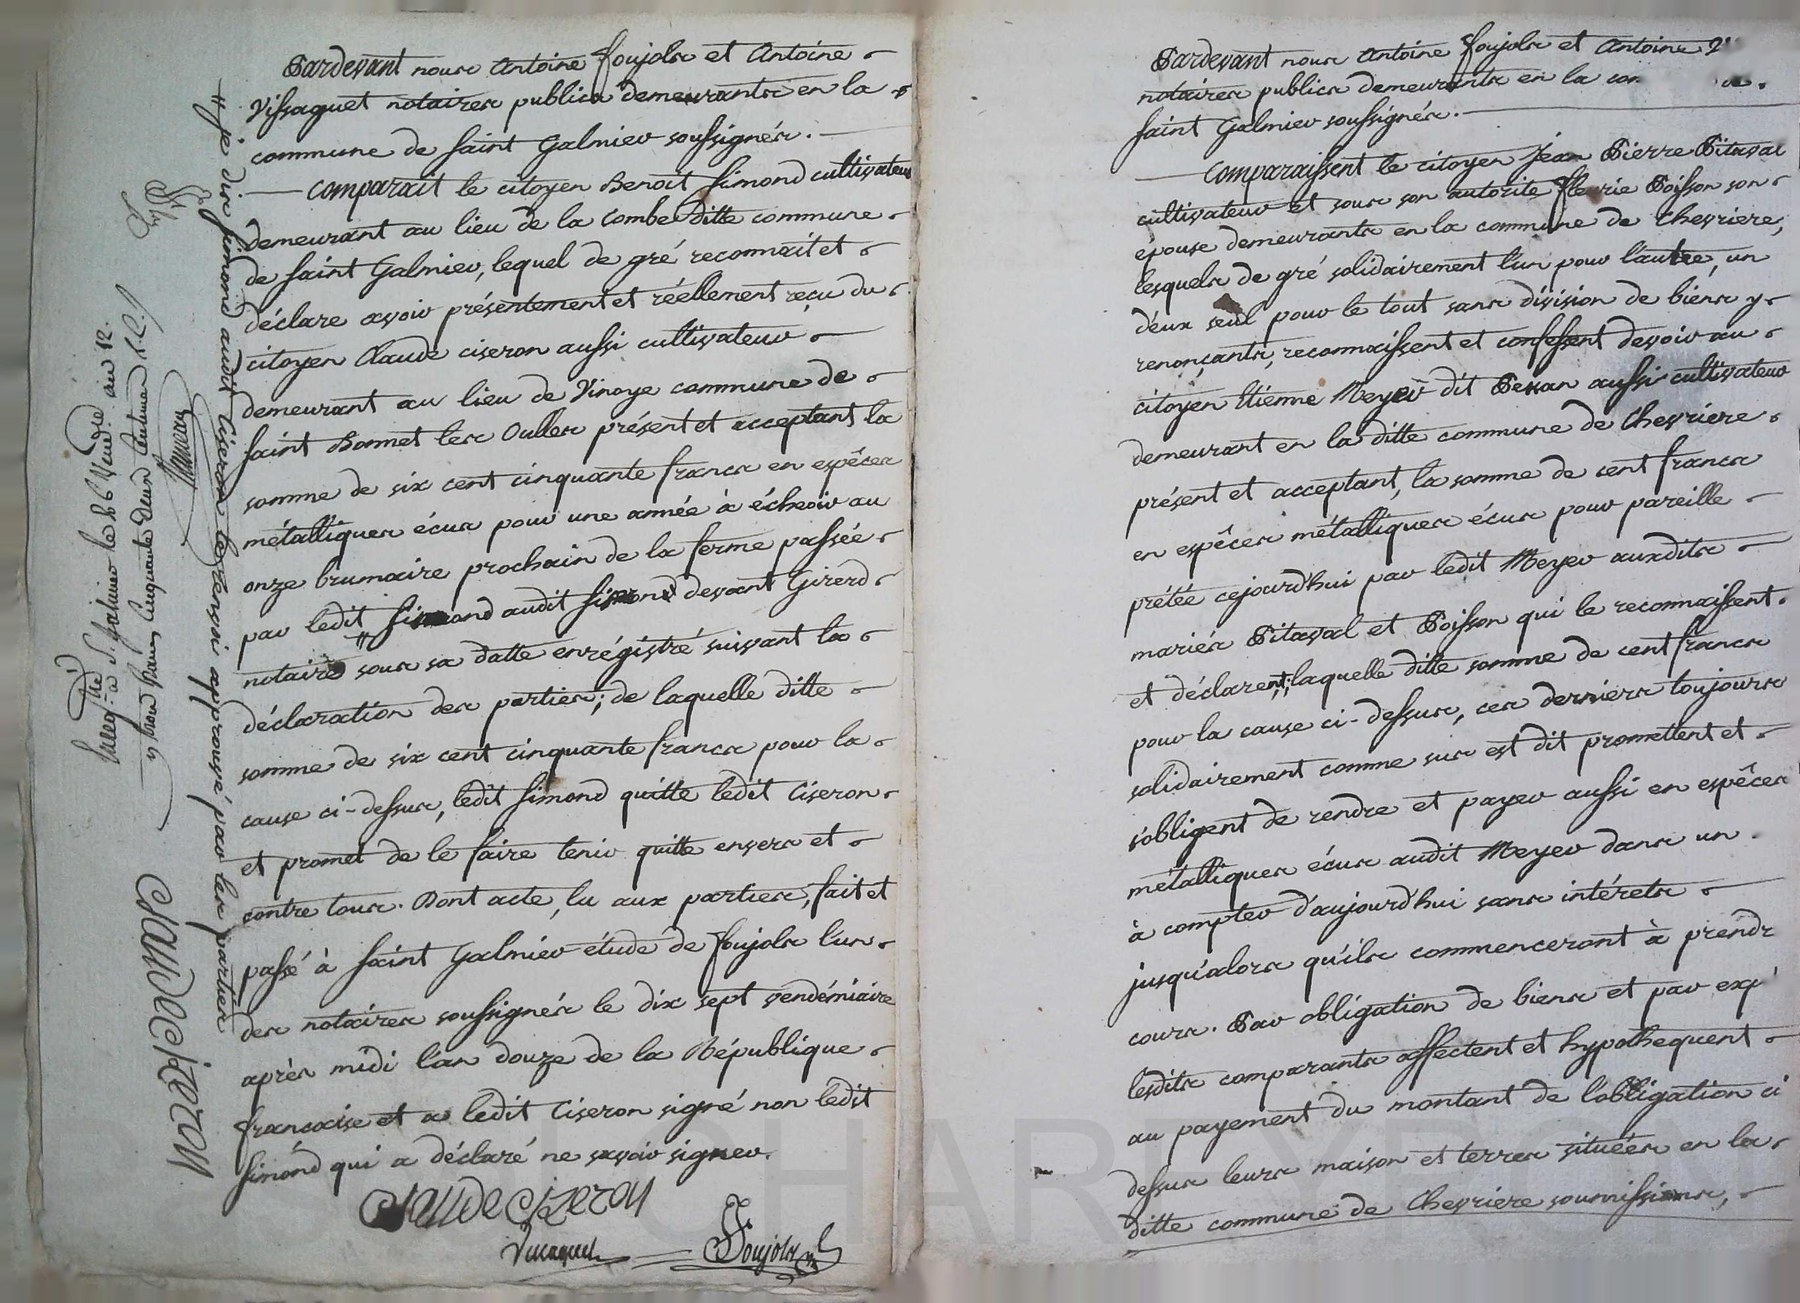 Pardevant nous Antoine Foujols et Antoine
Vissaguet notaires publics demeurants en la
commune de Saint Galmier soussignés.
Comparait le citoyen Benoit Simond cultivateur
demeurant au lieu de la Combe ditte commune
de Saint Galmier, lequel de gré reconnait et
déclare avoir présentement et réellement reçu du
citoyen Claude Ciseron aussi cultivateur
demeurant au lieu de Vinoye commune de
Saint Bonnet les Oulles présent et acceptant la
somme de six cent cinquante francs en espêces
métalliques écus pour une année à écheoir au
onze brumaire prochain de la ferme passée
par ledit Simond audit devant Girerd
notaire sous sa datte enrégistré suivant la
déclaration des parties; de laquelle ditte
somme de six cent cinquante francs pour la
cause ci-dessus, ledit Simond quitte ledit Ciseron
et promet de le faire tenir quitte envers et
contre tous. Dont acte, lu aux parties, fait et
passé à Saint Galmier étude de Foujols l'un
des notaires soussignés le dix sept vendémiaire
après midi l'an douze de la République
francaise et a ledit Ciseron signé non ledit
Simond qui a déclaré ne savoir signer.
Claude Cizeron
Vissaguet Foujols
je dis Simond audit Ciseron le renvoi approuvé par les parties
Claude Cizeron
Enreg.tré à S.t Galmier le Vend.re an 12.
Pardevant nous Antoine Foujols et Antoine
notaires publics demeurants en la
Saint Galmier soussignés.
Comparaissent le citoyen Jéan Pierre Pitaval
cultivateur et sous son autorité Fleurie Poisson son
épouse demeurants en la commune de Chevriere,
lesquels de gré solidairement l'un pour l'autre, un
d'éux seul pour le tout sans division de biens y
renonçants, reconnaissent et confessent devoir au
citoyen Etienne Meyer dit Pessan aussi cultivateur
demeurant en la ditte commune de Chevriere
présent et acceptant, la somme de cent francs
en espêces métalliques écus pour pareille
prétée cejourd'hui par ledit Meyer auxdits
mariés Pitaval et Poisson qui le reconnaissent
et déclarent; laquelle ditte somme de cent francs
pour la cause ci-dessus, ces derniers toujours
solidairement comme sus est dit promettent et
s'obligent de rendre et payer aussi en espêces
métalliques écus audit Meyer dans un
à compter d'aujourd'hui sans intérets
jusqu'alors qu'ils commenceront à prendre
cours. Par obligation de biens et par
lesdits comparants affectent et hypothequent
au payement du montant de l'obligation ci
dessus leurs maison et terres situées en la
ditte commune de Chevriere soumissions,